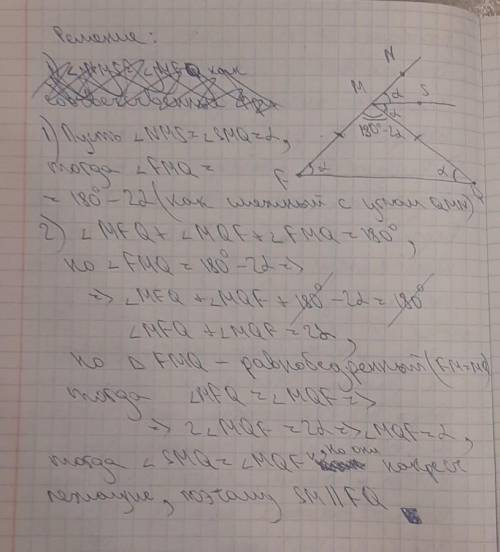 Решение:
1) ∠NMS = ∠MFQ как
соответственные
1) Пусть ∠NMS = ∠SMQ = α,
тогда ∠FMQ =
= 180° - 2α (как смежный с углом QMN)
2) ∠MFQ + ∠MQF + ∠FMQ = 180°,
но ∠FMQ = 180° - 2α =>
=> ∠MFQ + ∠MQF + 180° - 2α = 180°
∠MFQ + ∠MQF = 2α,
но △ FMQ - равнобедренный (FM=MQ)
тогда ∠MFQ = ∠MQF =>
=> 2∠MQF = 2α => ∠MQF = α,
тогда ∠SMQ = ∠MQF, но они накрест
лежащие, поэтому SM || FQ
N
M
α
S
180° - 2α
F
α
α
Q